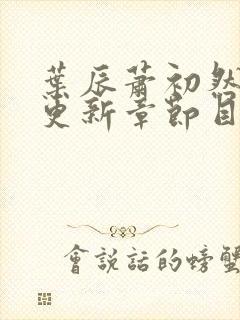 葉辰蕭初然
更新章節目
會說話的螃蟹